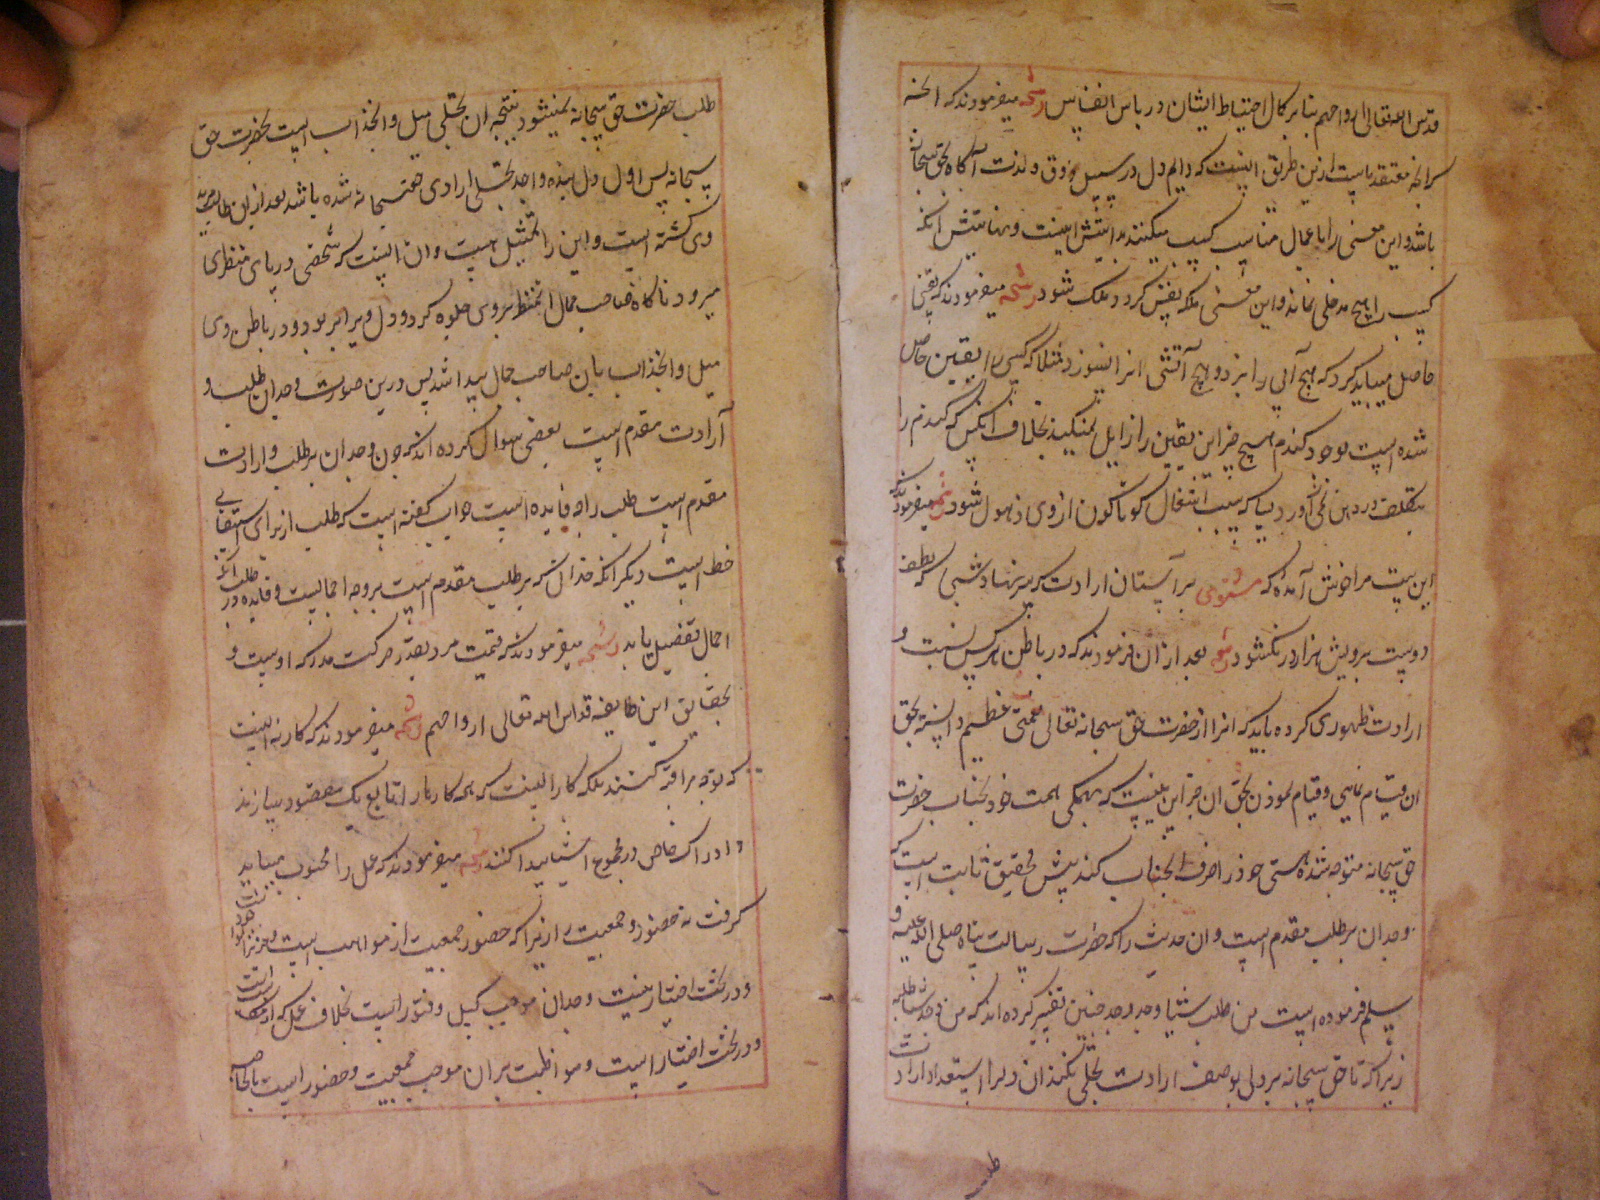 قدس الله تعالی ارواحهم بنا بر کمال احتیاط ایشان در پاس انفاس رشحه میفرمودند که آنچه
سرانجه معتقد ماست ازین طریق اینست که دایم دل در سبیل ذوق و لذت آگاه بحق سبحانه
باشد و این معنی را باعمال مناسب کسب میکنند بدایتش اینست و نهایتش آنکه
کسب را هیچ مدخلی نماند و این معنی ملکه نفس کردد و ملک شود رشحه میفرمودند که یقینی
حاصل میباید کرد که هیچ آبی را نبرد و هیچ آتشی انرا نسوزد مثلا کسی را یقین حاصل
شده است بوجود کندم هیچ چیز این یقین را زایل نمیکند بخلاف آنکس که کندم را
بتکلف در ذهن خود آورد بسا که بسبب اشتغال کوناکون از وی ذهول شود رشحه میفرمودند که
این بیت مرا خوش آمده که مثنوی بر آستان ارادت که سر نهاد شبی که لطف
دوست برویش هزار در نکشود رشحه بعد ازان فرمودند که در باطن هر کس نسبت و
ارادت ظهوری کرده باید که انرا از حضرت حق سبحانه تعالی نعمتی عظیم دانسته بحق
ان قیام نمایی و قیام نمودن بحق ان جز این نیست که بهمکی همت خود بجناب حضرت
حق سبحانه متوجه شده هستی خود را صرف انجناب کند پیش محقیق ثابت است که
وجدان بر طلب مقدم است و ان حدیث را که حضرت رسالت پناه صلی الله علیه و
سلم فرموده است من طلب شیئا وجد وجد چنین تفسیر کرده اند که من وجد شیئا طلبه
زیرا که تا حق سبحانه بر دل بوصف ارادت تجلی نکند ان دلرا استعداد ارادت
طلب
طلب حضرت حق سبحانه نمیشود نتیجه ان تجلی میل و انجذاب است بحضرت حق
سبحانه پس اول دل بنده واجد تجلی ارادی حق سبحانه شده باشد بعد ازان طالب
وی کشته است و این را تمثیل است و ان اینست که شخصی در پای منظری
میرود ناکاه صاحب جمال از منظر بر وی جلوه کرد و دل ویرا بربود و در باطن وی
میل و انجذاب بان صاحب جمال پیدا شد پس درین صورت وجدان طلب و
ارادت مقدم است بعضی سوال کرده اند که چون وجدان بر طلب و ارادت
مقدم است طلب را چه فایده است جواب کفته است که طلب از برای استیفای
حظ است دیکر انکه وجدان که بر طلب مقدم است بر وجه اجمالیست و فایده در طلب آنکه
اجمال تفصیل یابد رشحه میفرمودند که قیمت مرد بقدر حرکت مدرکه اوست و
بحقایق این طایفه قدس الله تعالی ارواحهم رشحه میفرمودند که کار نه اینست
که توجه مراقبه کنند بلکه کار اینست که همه کاربار را تابع یک مقصود سازند
و ادراک خاص در مجموع اشیا پیدا کنند رشحه میفرمودند که عمل را محبوب میباید
کرفت نه حضور و جمعیت را زیرا که حضور جمعیت از مواهب است
و در تحت اختیار نیست و جدان موجب کسل و فتور است بخلاف عمل که
و در تحت اختیار است و مواظبت بران موجب جمعیت و حضور است